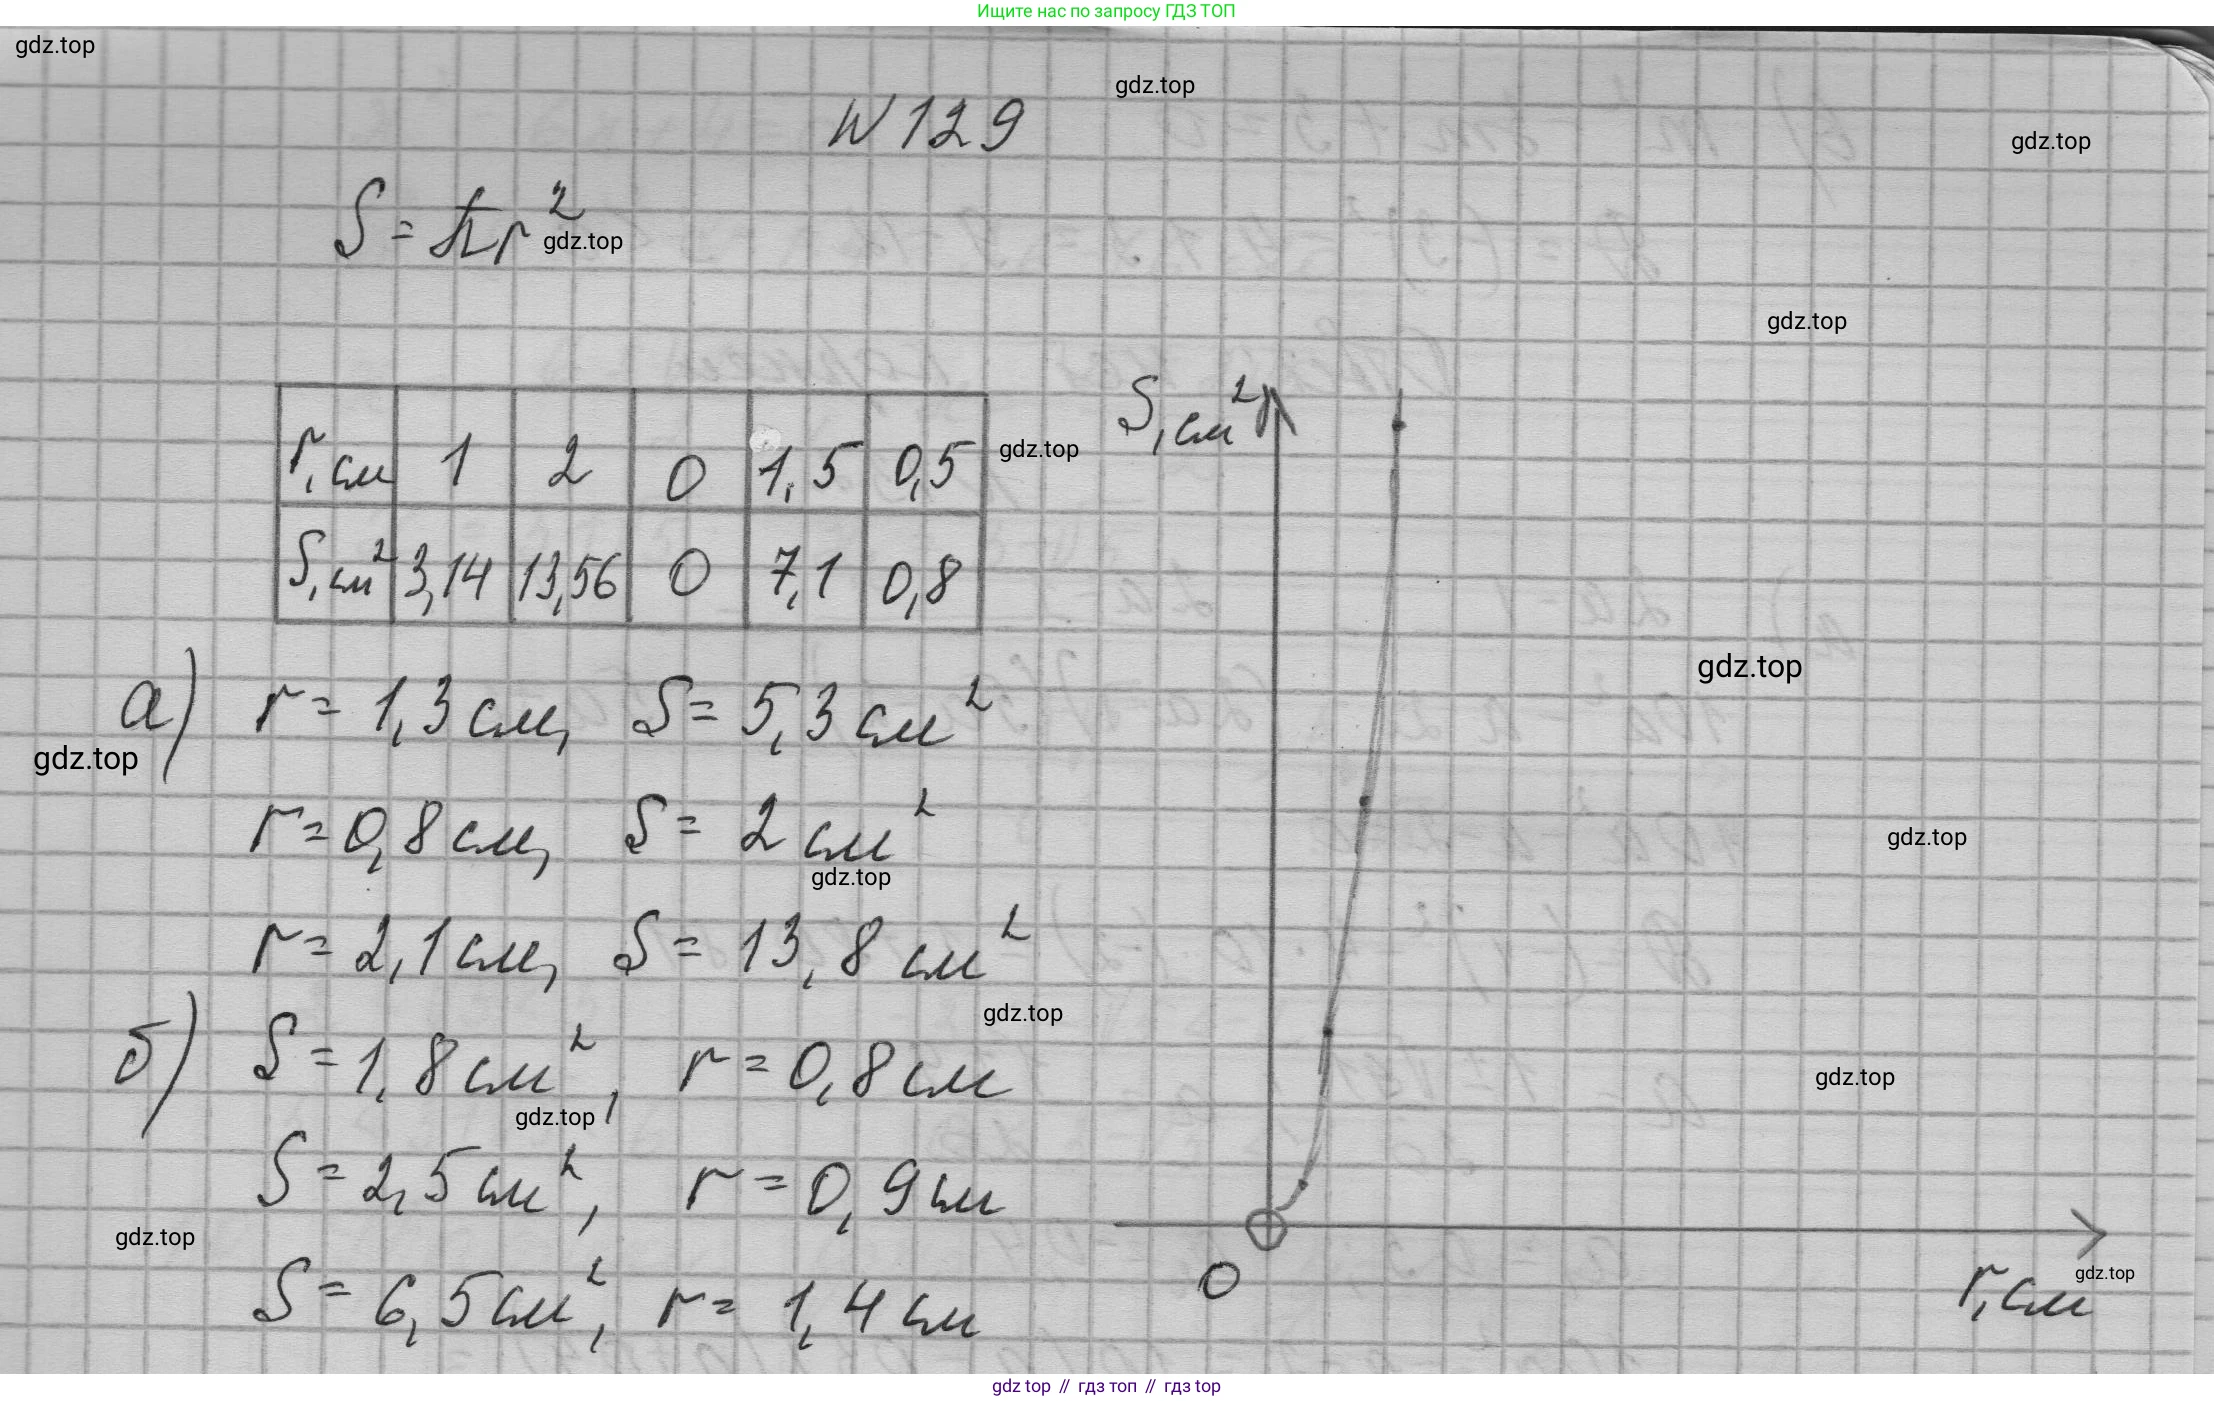 Ищите нас по запросу ГДЗ ТОП
gdz.top
gdz.top
N 129
gdz.top
S = πr²
gdz.top
gdz.top
r, см 1 2 0 1,5 0,5
S, см² 3,14 13,56 0 7,1 0,8
gdz.top
S, см²
а) r = 1,3 см, S = 5,3 см²
gdz.top
gdz.top
r = 0,8 см, S = 2 см²
gdz.top
gdz.top
r = 2,1 см, S = 13,8 см²
gdz.top
б) S = 1,8 см², r = 0,8 см
gdz.top
gdz.top
S = 2,5 см², r = 0,9 см
gdz.top
S = 6,5 см², r = 1,4 см
0
r, см
gdz.top
gdz top // гдз топ // gdz top